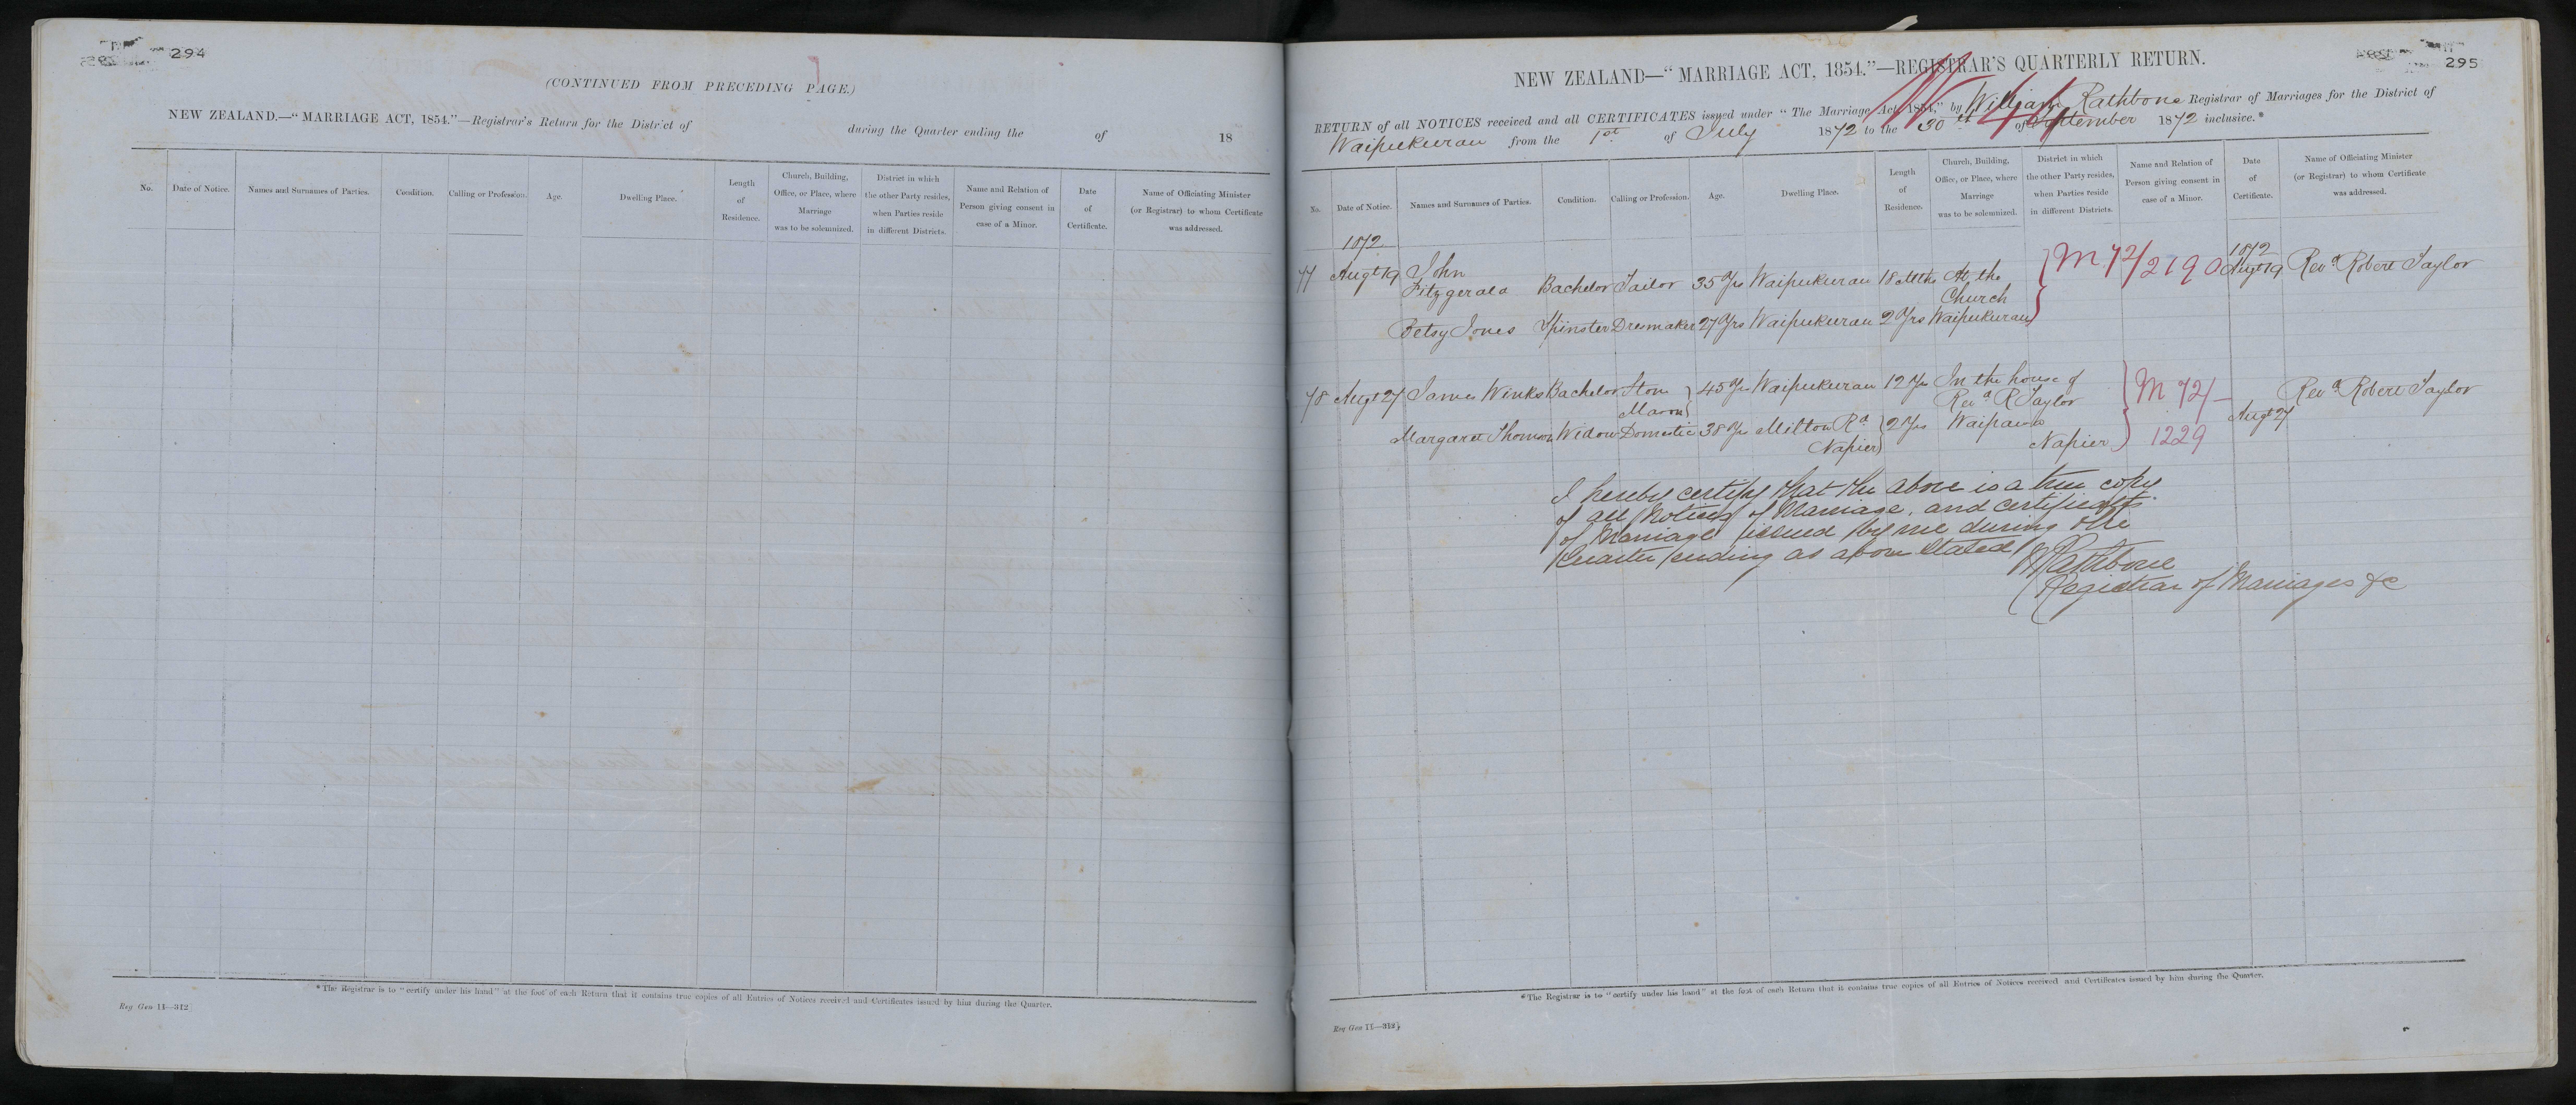 294
(CONTINUED FROM PRECEDING PAGE.)
NEW ZEALAND.—"MARRIAGE ACT, 1854."—Registrar's Return for the District of during the Quarter ending the of 18
No. Date of Notice. Names and Surnames of Parties. Condition. Calling or Profession. Age. Dwelling Place. Length of Residence. Church, Building, Office, or Place, where Marriage was to be solemnized. District in which the other Party resides, when Parties reside in different Districts. Name and Relation of Person giving consent in case of a Minor. Date of Certificate. Name of Officiating Minister (or Registrar) to whom Certificate was addressed.
*The Registrar is to "certify under his hand" at the foot of each Return that it contains true copies of all Entries of Notices received and Certificates issued by him during the Quarter.
Reg Gen 11—312
295
NEW ZEALAND—"MARRIAGE ACT, 1854."—REGISTRAR'S QUARTERLY RETURN.
RETURN of all NOTICES received and all CERTIFICATES issued under "The Marriage Act, 1854," by William Rathbone Registrar of Marriages for the District of
Waipukurau from the 1st of July 1872 to the 30th of September 1872 inclusive.*
No. Date of Notice. Names and Surnames of Parties. Condition. Calling or Profession. Age. Dwelling Place. Length of Residence. Church, Building, Office, or Place, where Marriage was to be solemnized. District in which the other Party resides, when Parties reside in different Districts. Name and Relation of Person giving consent in case of a Minor. Date of Certificate. Name of Officiating Minister (or Registrar) to whom Certificate was addressed.
1872 1872
77 Augt 19 John Fitzgerald Bachelor Tailor 35 Yrs Waipukurau 18 Mths At the Church M 72/2190 Augt 19 Revd Robert Taylor
Betsy Jones Spinster Dresmaker 27 Yrs Waipukurau 2 Yrs Waipukurau
78 Augt 27 James Winks Bachelor Stone Mason 45 Yrs Waipukurau 12 Yrs In the house of Revd R Taylor M 72/— 1229 Augt 27 Revd Robert Taylor
Margaret Thomson Widow Domestic 38 Yrs Milton Rd Napier 2 Yrs Waipawa Napier
I hereby certify that the above is a true copy
of all Notices of Marriage, and certificates
of Marriage issued by me during the
Quarter ending as above stated
W Rathbone
Registrar of Marriages &c
*The Registrar is to "certify under his hand" at the foot of each Return that it contains true copies of all Entries of Notices received and Certificates issued by him during the Quarter.
Reg Gen 11—312